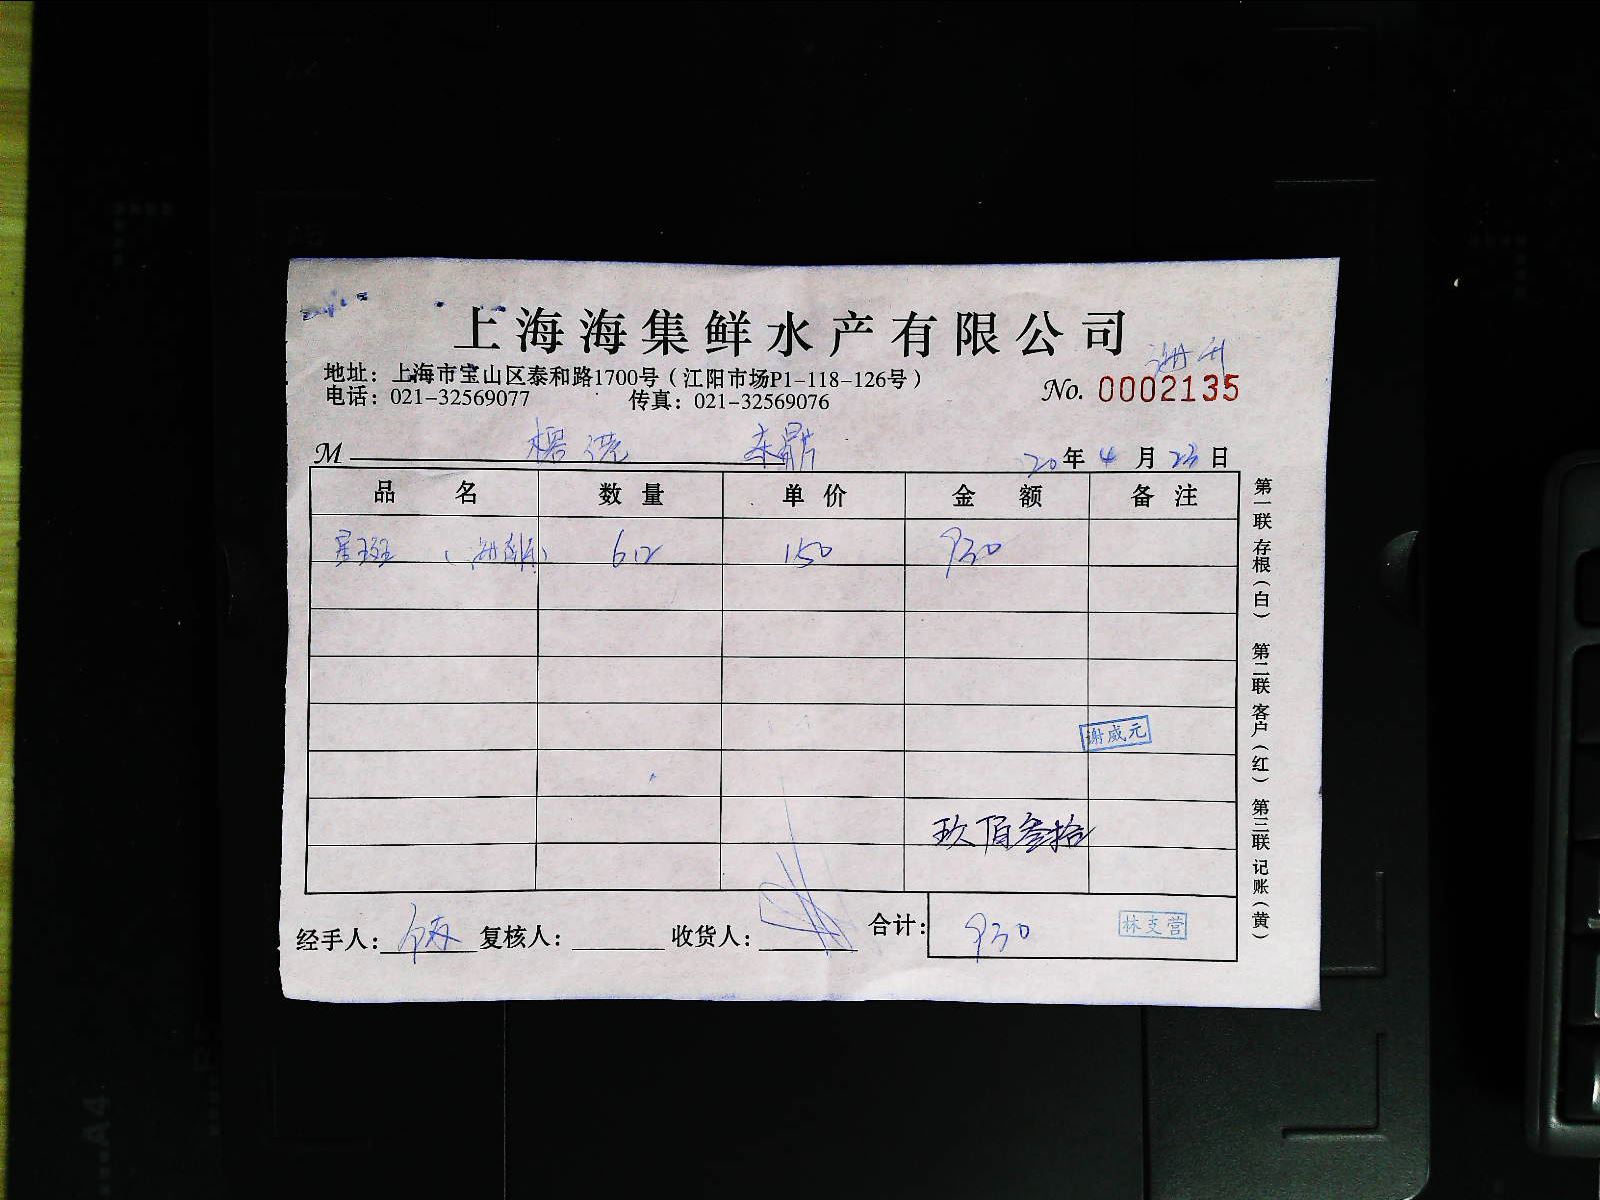 上海海集鲜水产有限公司
地址：上海市宝山区泰和路1700号（江阳市场P1-118-126号）
电话：021-32569077 传真：021-32569076
No. 0002135
M
20年4月23日
品名 数量 单价 金额 备注
星斑 612 150 930
谢威元
玖佰叁拾
经手人： 复核人： 收货人： 合计： 930
林支营
第一联 存根（白） 第二联 客户（红） 第三联 记账（黄）